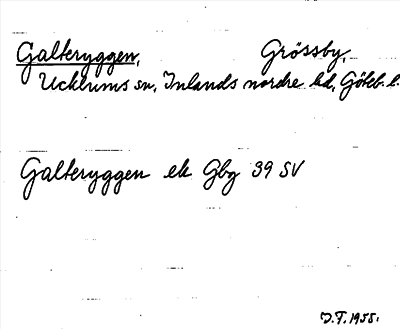 Galteryggen, Grössby,
Ucklums sn, Inlands nordre hd, Göteb. l.
Galteryggen ek Gbg 39 SV
J.F. 1955.